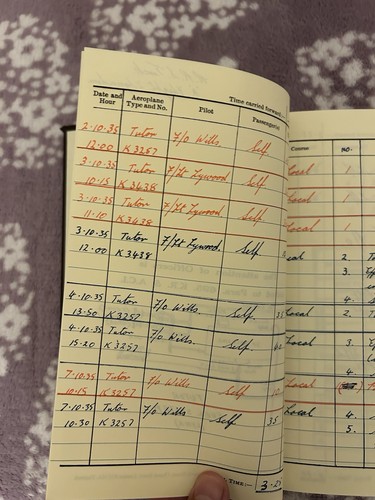 Time carried forward:—
Date and Hour Aeroplane Type and No. Pilot Passenger Course NO.
2·10·35 Tutor F/O Wills. Self. Local 1
12·00 K3257
3·10·35 Tutor F/Lt Lywood Self. Local 1
10·15 K3438
3·10·35 Tutor F/Lt Lywood Self. Local 1
11·10 K3438
3·10·35 Tutor F/Lt Lywood. Self. Local 2.
12·00 K3438 3.
4.
4·10·35 Tutor F/O Wills. Self. Local 2.
13·50 K3257
4·10·35 Tutor F/O Wills. Self. Local 3.
15·20 K3257 4
7·10·35 Tutor F/O Wills Self. Local
10·15 K3257
7·10·35 Tutor F/O Wills. Self. 35 Local 4.
10·30 K3257 5.
TIME:— 3·2